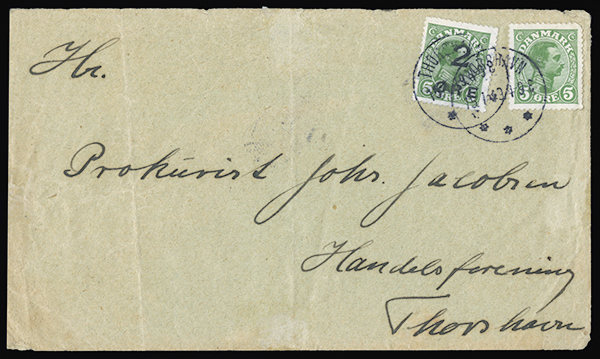 DANMARK
2
ØRE
5 5
DANMARK
5 ØRE 5
THORSHAVN
Hr.
Prokurist Johs. Jacobsen
Handelsforening
Thorshavn